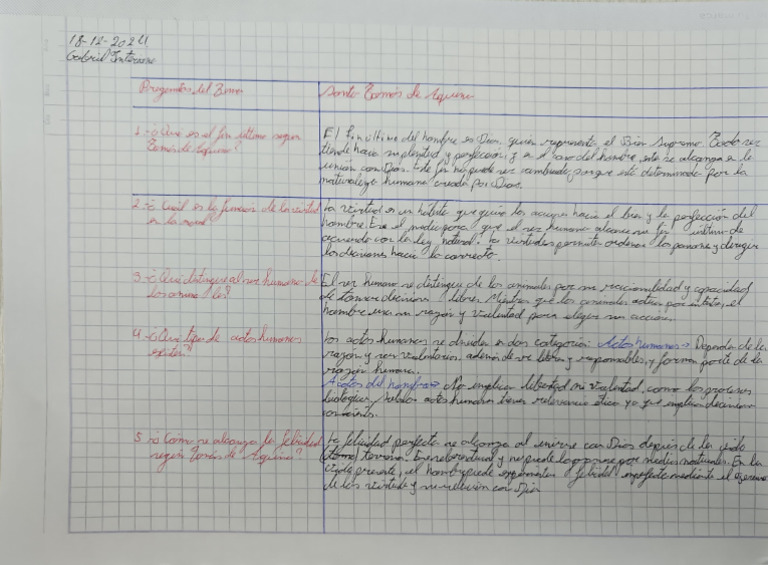 18-12-2024
Gabriel
Preguntas del Tema
Santo Tomás de Aquino
1.-¿Qué es el fin último según
Tomás de Aquino?
El fin último del hombre es Dios, quien representa el Bien Supremo. Todo ser
tiende hacia su plenitud y perfección, y en el caso del hombre, esto se alcanza en la
unión con Dios. Este fin no puede ser cambiado, porque está determinado por la
naturaleza humana creada por Dios.
2.-¿Cuál es la función de la virtud
en la moral
La virtud es un hábito que guia las acciones hacia el bien y la perfección del
hombre. Es el medio para que el ser humano alcance su fin último de
acuerdo con la ley natural. las virtudes permiten ordenar las pasiones y dirigir
las decisiones hacia lo correcto.
3.-¿Qué distingue al ser humano de
los animales?
El ser humano se distingue de los animales por su racionalidad y capacidad
de tomar decisiones libres. Mientras que los animales actúan por instinto, el
hombre usa su razón y voluntad para elegir sus acciones.
4.-¿Qué tipo de actos humanos
existen?
Los actos humanos se dividen en dos categorías: Actos humanos→ Dependen de la
razón y son voluntarios, además de libres y responsables, y forman parte de la
razón humana.
Actos del hombre→ No implica libertad ni voluntad, como los procesos
biológicos. los actos humanos tienen relevancia ética ya que implica decisiones
5.-¿Cómo se alcanza la felicidad
según Tomás de Aquino?
La felicidad perfecta se alcanza al unirse con Dios después de la vida
terrena. Es sobrenatural y no puede lograrse por medios naturales. En la
vida presente, el hombre puede experimentar felicidad imperfecta mediante el
de las virtudes y su relación con Dios